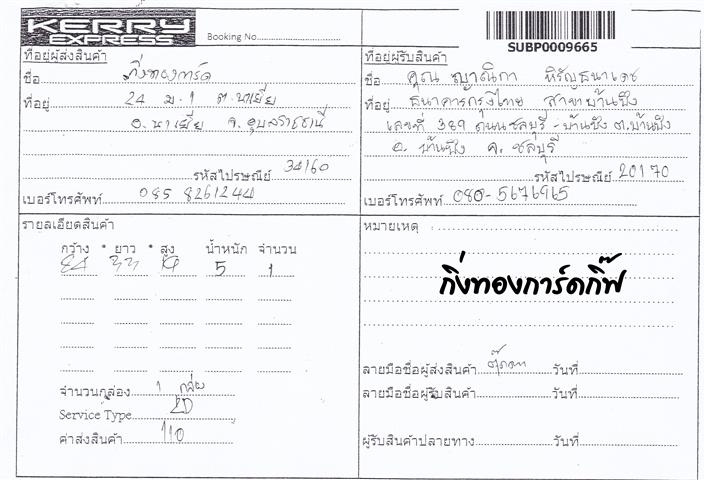 KERRY
EXPRESS
Booking No.
SUBP0009665
ที่อยู่ผู้ส่งสินค้า
ชื่อ กิ่งทองการ์ด
ที่อยู่ 24 ม.1 ต.นาเยีย
อ.นาเยีย จ.อุบลราชธานี
รหัสไปรษณีย์ 34160
เบอร์โทรศัพท์ 085 8261244
ที่อยู่ผู้รับสินค้า
ชื่อ คุณ ญาณิกา หิรัญธนาเดช
ที่อยู่ ธนาคารกรุงไทย สาขาบ้านบึง
เลขที่ 389 ถนนชลบุรี-บ้านบึง ต.บ้านบึง
อ. บ้านบึง จ. ชลบุรี
รหัสไปรษณีย์ 20170
เบอร์โทรศัพท์ 080-5676965
รายละเอียดสินค้า
กว้าง * ยาว * สูง น้ำหนัก จำนวน
5 1
จำนวนกล่อง 1 กล่อง
Service Type 2D
ค่าส่งสินค้า 110
หมายเหตุ
กิ่งทองการ์ดกิ๊ฟ
ลายมือชื่อผู้ส่งสินค้า วันที่
ลายมือชื่อผู้รับสินค้า วันที่
ผู้รับสินค้าปลายทาง วันที่